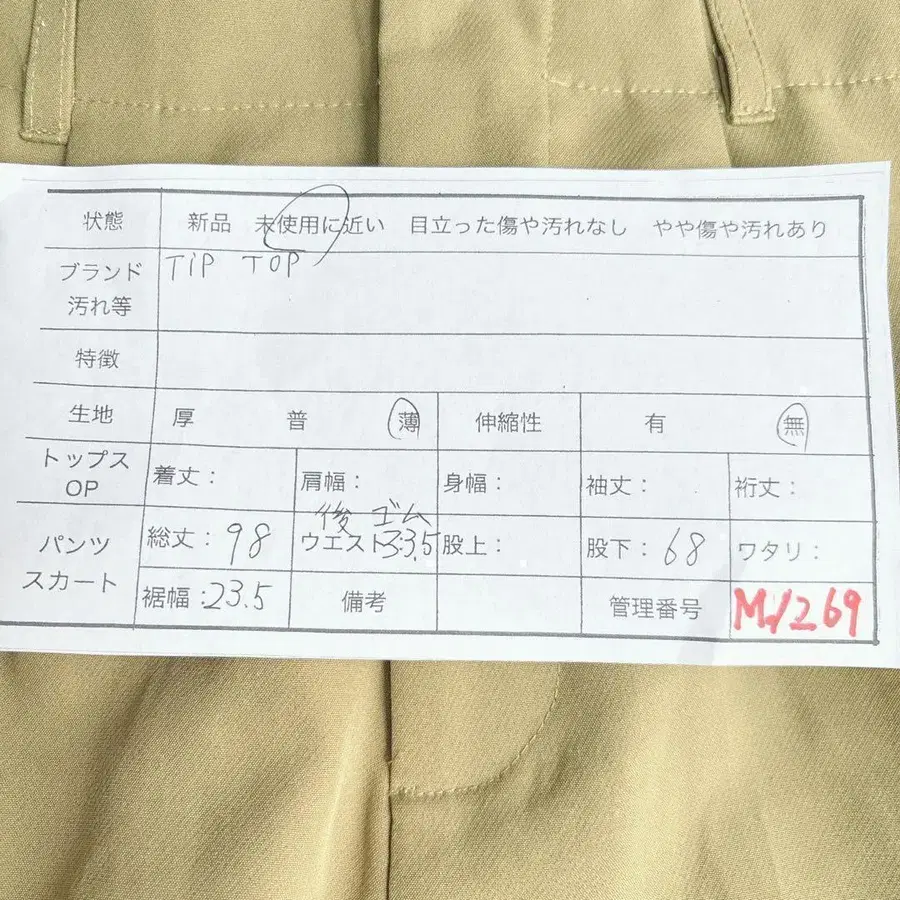 状態 新品 未使用に近い 目立った傷や汚れなし やや傷や汚れあり
ブランド TIP TOP
汚れ等
特徴
生地 厚 普 薄 伸縮性 有 無
トップス
OP 着丈: 肩幅: 身幅: 袖丈: 裄丈:
後 ゴム
パンツ
スカート 総丈: 98 ウエスト33.5 股上: 股下: 68 ワタリ:
裾幅:23.5 備考 管理番号 M1269